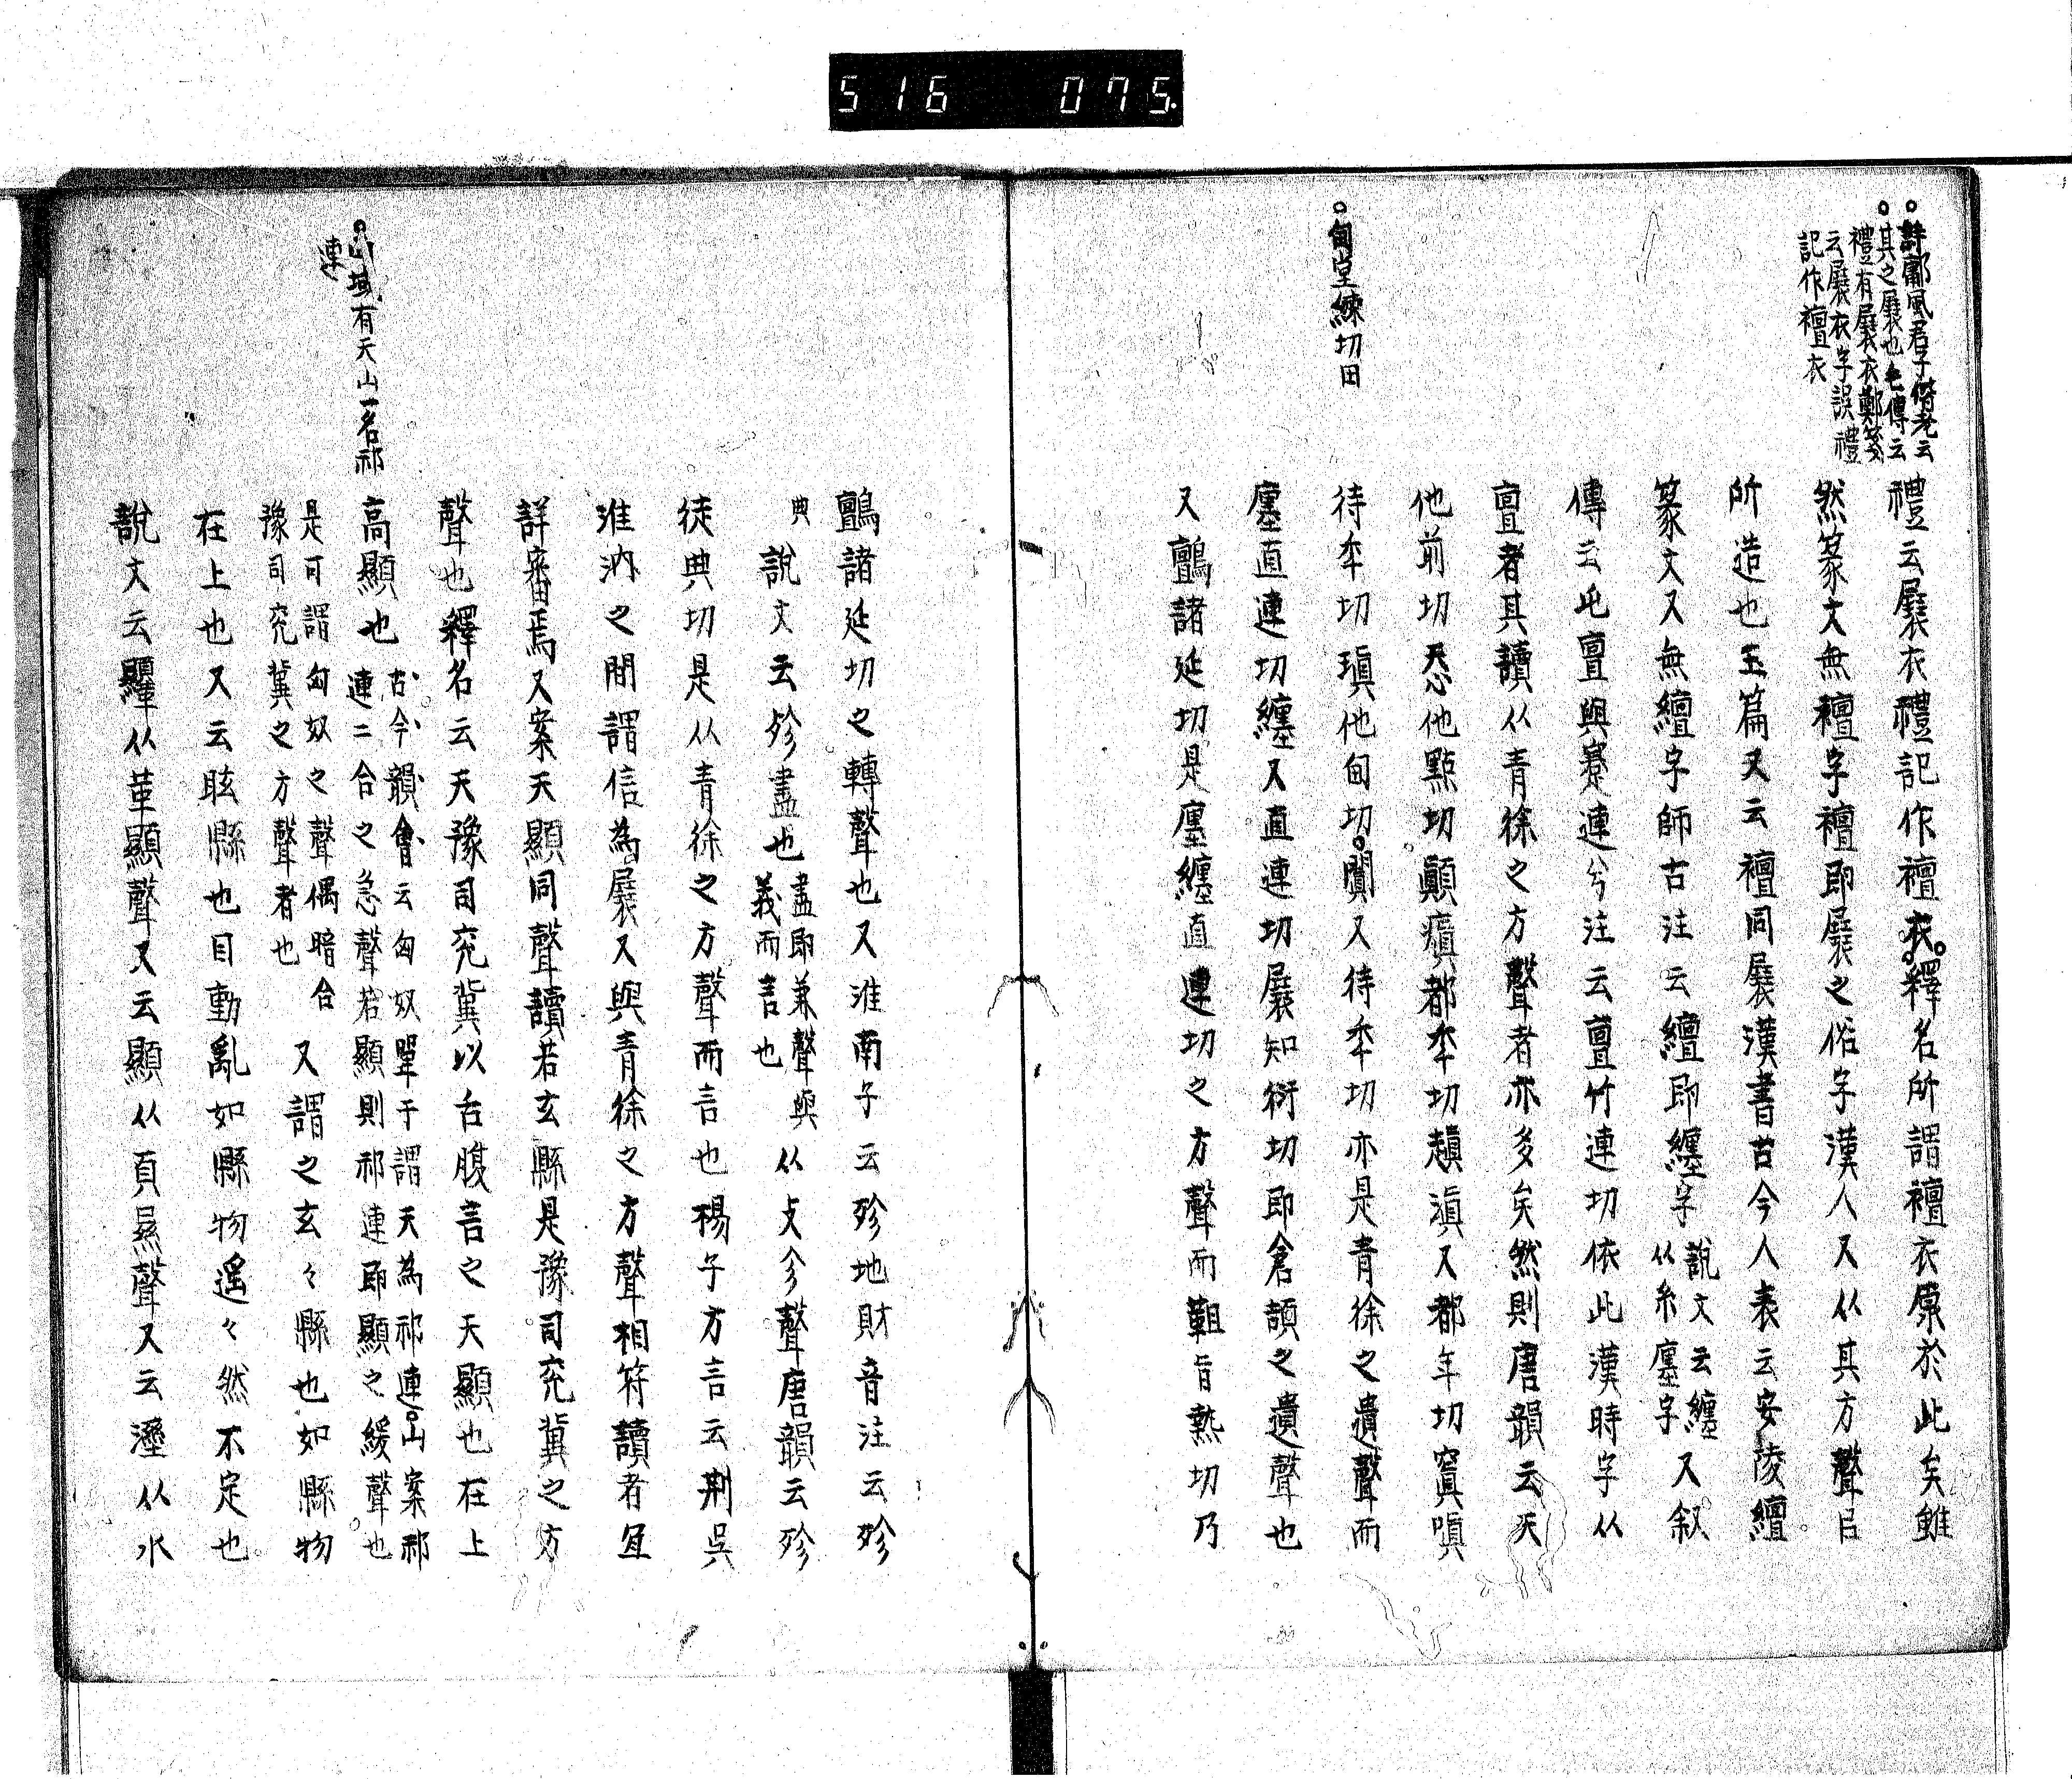 516 075.
。詩鄘風君子偕老云
。其之展也毛傳云
禮有展衣鄭箋
云展衣字誤禮
記作襢衣
禮云展衣禮記作襢衣。釋名所謂襢衣原於此矣雖
然篆文無襢字襢即展之俗字漢人又从其方聲㠯
所造也玉篇又云襢同展漢書古今人表云安陵繵
篆文又無繵字師古注云繵即纏字
說文云纏
从糸廛字
又叙
傳云屯亶與蹇連兮注云亶竹連切依此漢時字从
亶者其讀从青徐之方聲者亦多矣然則唐韻云天
他前切忝他點切顚瘨都秊切趚滇又都年切窴嗔
。甸堂練切田
待秊切瑱他甸切。闐又待秊切亦是青徐之遺聲而
廛直連切纏又直連切展知衍切即倉頡之遺聲也
又鸇諸延切是廛纏直連切之方聲而䵣旨熱切乃
鸇諸延切之轉聲也又淮南子云殄地財音注云殄
典
說文云殄盡也
盡即兼聲與
義而言也
从歺㐱聲唐韻云殄
徒典切是从青徐之方聲而言也楊子方言云荆吳
淮汭之間謂信為展又與青徐之方聲相符讀者宜
詳審焉又案天顯同聲讀若玄縣是豫司兗冀之方
聲也釋名云天豫司兗冀以舌腹言之天顯也在上
。山域有天山一名祁
連
高顯也
古今韻會云匈奴單于謂天為祁連。山案祁
連二合之急聲若顯則祁連即顯之緩聲也
是可謂匈奴之聲偶暗合
豫司兗冀之方聲者也
又謂之玄々縣也如縣物
在上也又云眩縣也目動亂如縣物遙々然不定也
說文云韅从革顯聲又云顯从頁㬎聲又云濕从水